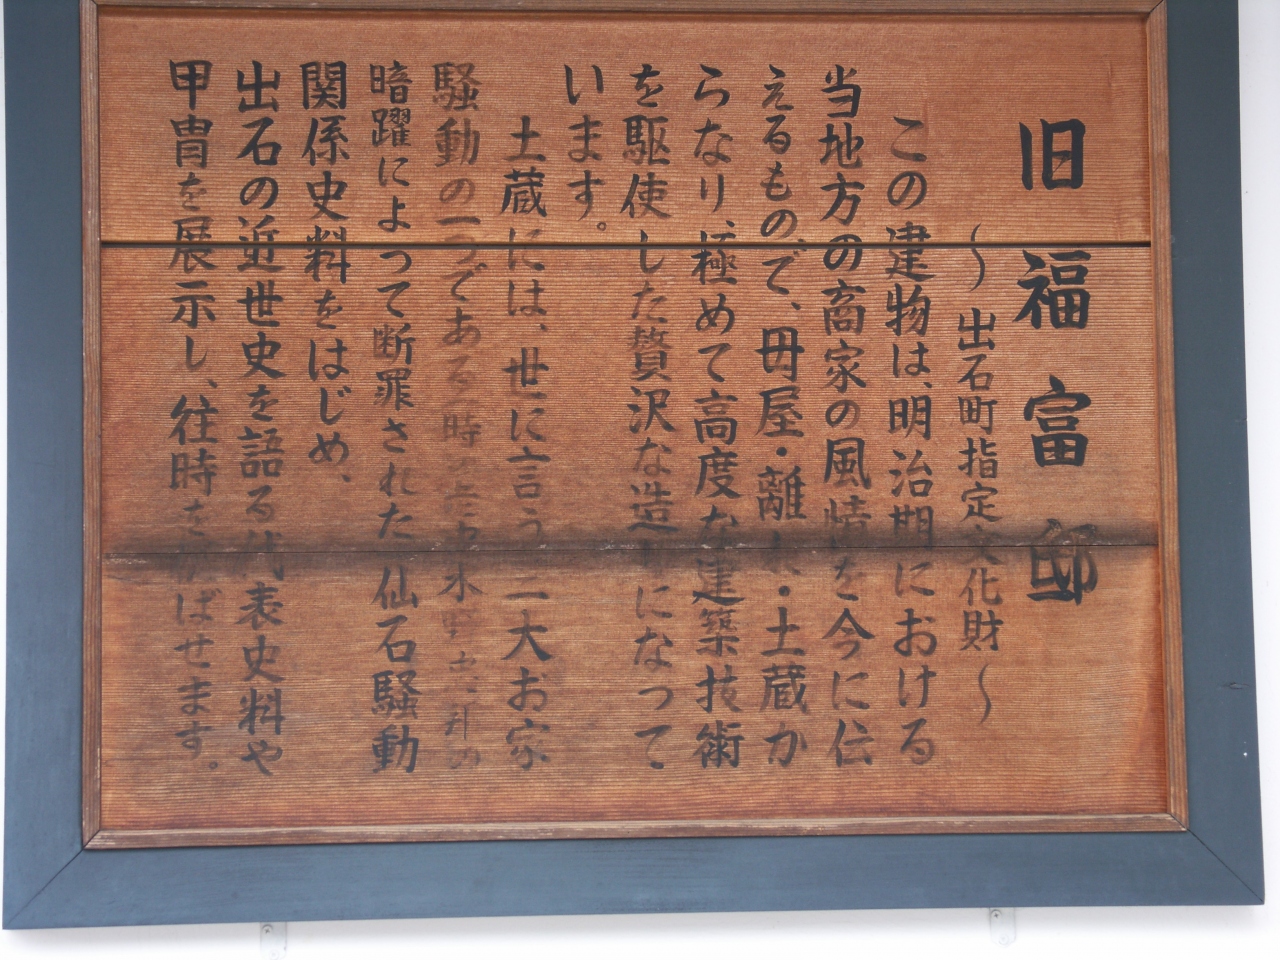 旧福富邸
〜出石町指定文化財〜
この建物は、明治期における
当地方の商家の風情を今に伝
えるもので、母屋・離れ・土蔵か
らなり、極めて高度な建築技術
を駆使した贅沢な造りになって
います。
土蔵には、世に言う三大お家
騒動の一つである時の老中水野忠邦の
暗躍によって断罪された仙石騒動
関係史料をはじめ、
出石の近世史を語る代表史料や
甲冑を展示し、往時を偲ばせます。